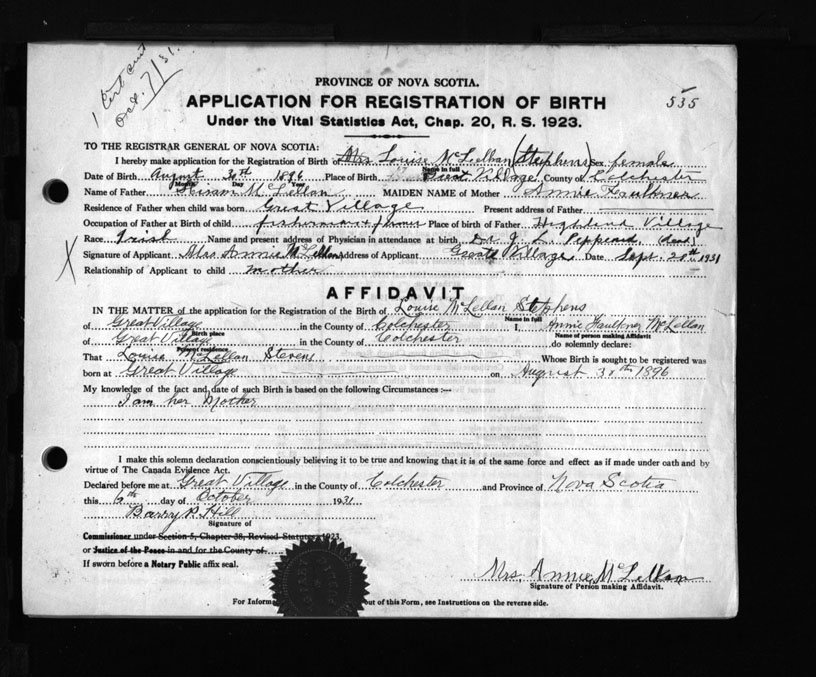 1 Cert sent
Oct. 7/31.
PROVINCE OF NOVA SCOTIA.
APPLICATION FOR REGISTRATION OF BIRTH
535
Under the Vital Statistics Act, Chap. 20, R. S. 1923.
TO THE REGISTRAR GENERAL OF NOVA SCOTIA:
I hereby make application for the Registration of Birth of Mrs Louise McLellan (Stephens) Sex female
Name in full
Date of Birth August 30th 1896 Place of Birth Great Village County of Colchester
Month Day Year
Name of Father Hiram McLellan MAIDEN NAME of Mother Annie Faulkner
Residence of Father when child was born Great Village Present address of Father
Occupation of Father at Birth of child Place of birth of Father Highland Village
Race Irish Name and present address of Physician in attendance at birth Dr. J. L. Peppard (dead)
Signature of Applicant Mrs Annie McLellan Address of Applicant Great Village Date Sept. 1931
Relationship of Applicant to child mother
AFFIDAVIT
IN THE MATTER of the application for the Registration of the Birth of Louise McLellan Stephens
Name in full
of Great Village in the County of Colchester I, Annie Faulkner McLellan
Birth place Name of person making Affidavit
of Great Village in the County of Colchester do solemnly declare:
Present residence
That Louise McLellan Stevens Whose Birth is sought to be registered was
born at Great Village on August 30th 1896
My knowledge of the fact and date of such Birth is based on the following Circumstances :—
I am her Mother
I make this solemn declaration conscientiously believing it to be true and knowing that it is of the same force and effect as if made under oath and by
virtue of The Canada Evidence Act.
Declared before me at Great Village in the County of Colchester and Province of Nova Scotia
this 6th day of October 1931
Barry P. Hill
Signature of
Commissioner under Section 5, Chapter 38, Revised Statutes, 1923,
or Justice of the Peace in and for the County of
If sworn before a Notary Public affix seal.
Mrs. Annie McLellan
Signature of Person making Affidavit.
For Informa out of this Form, see Instructions on the reverse side.